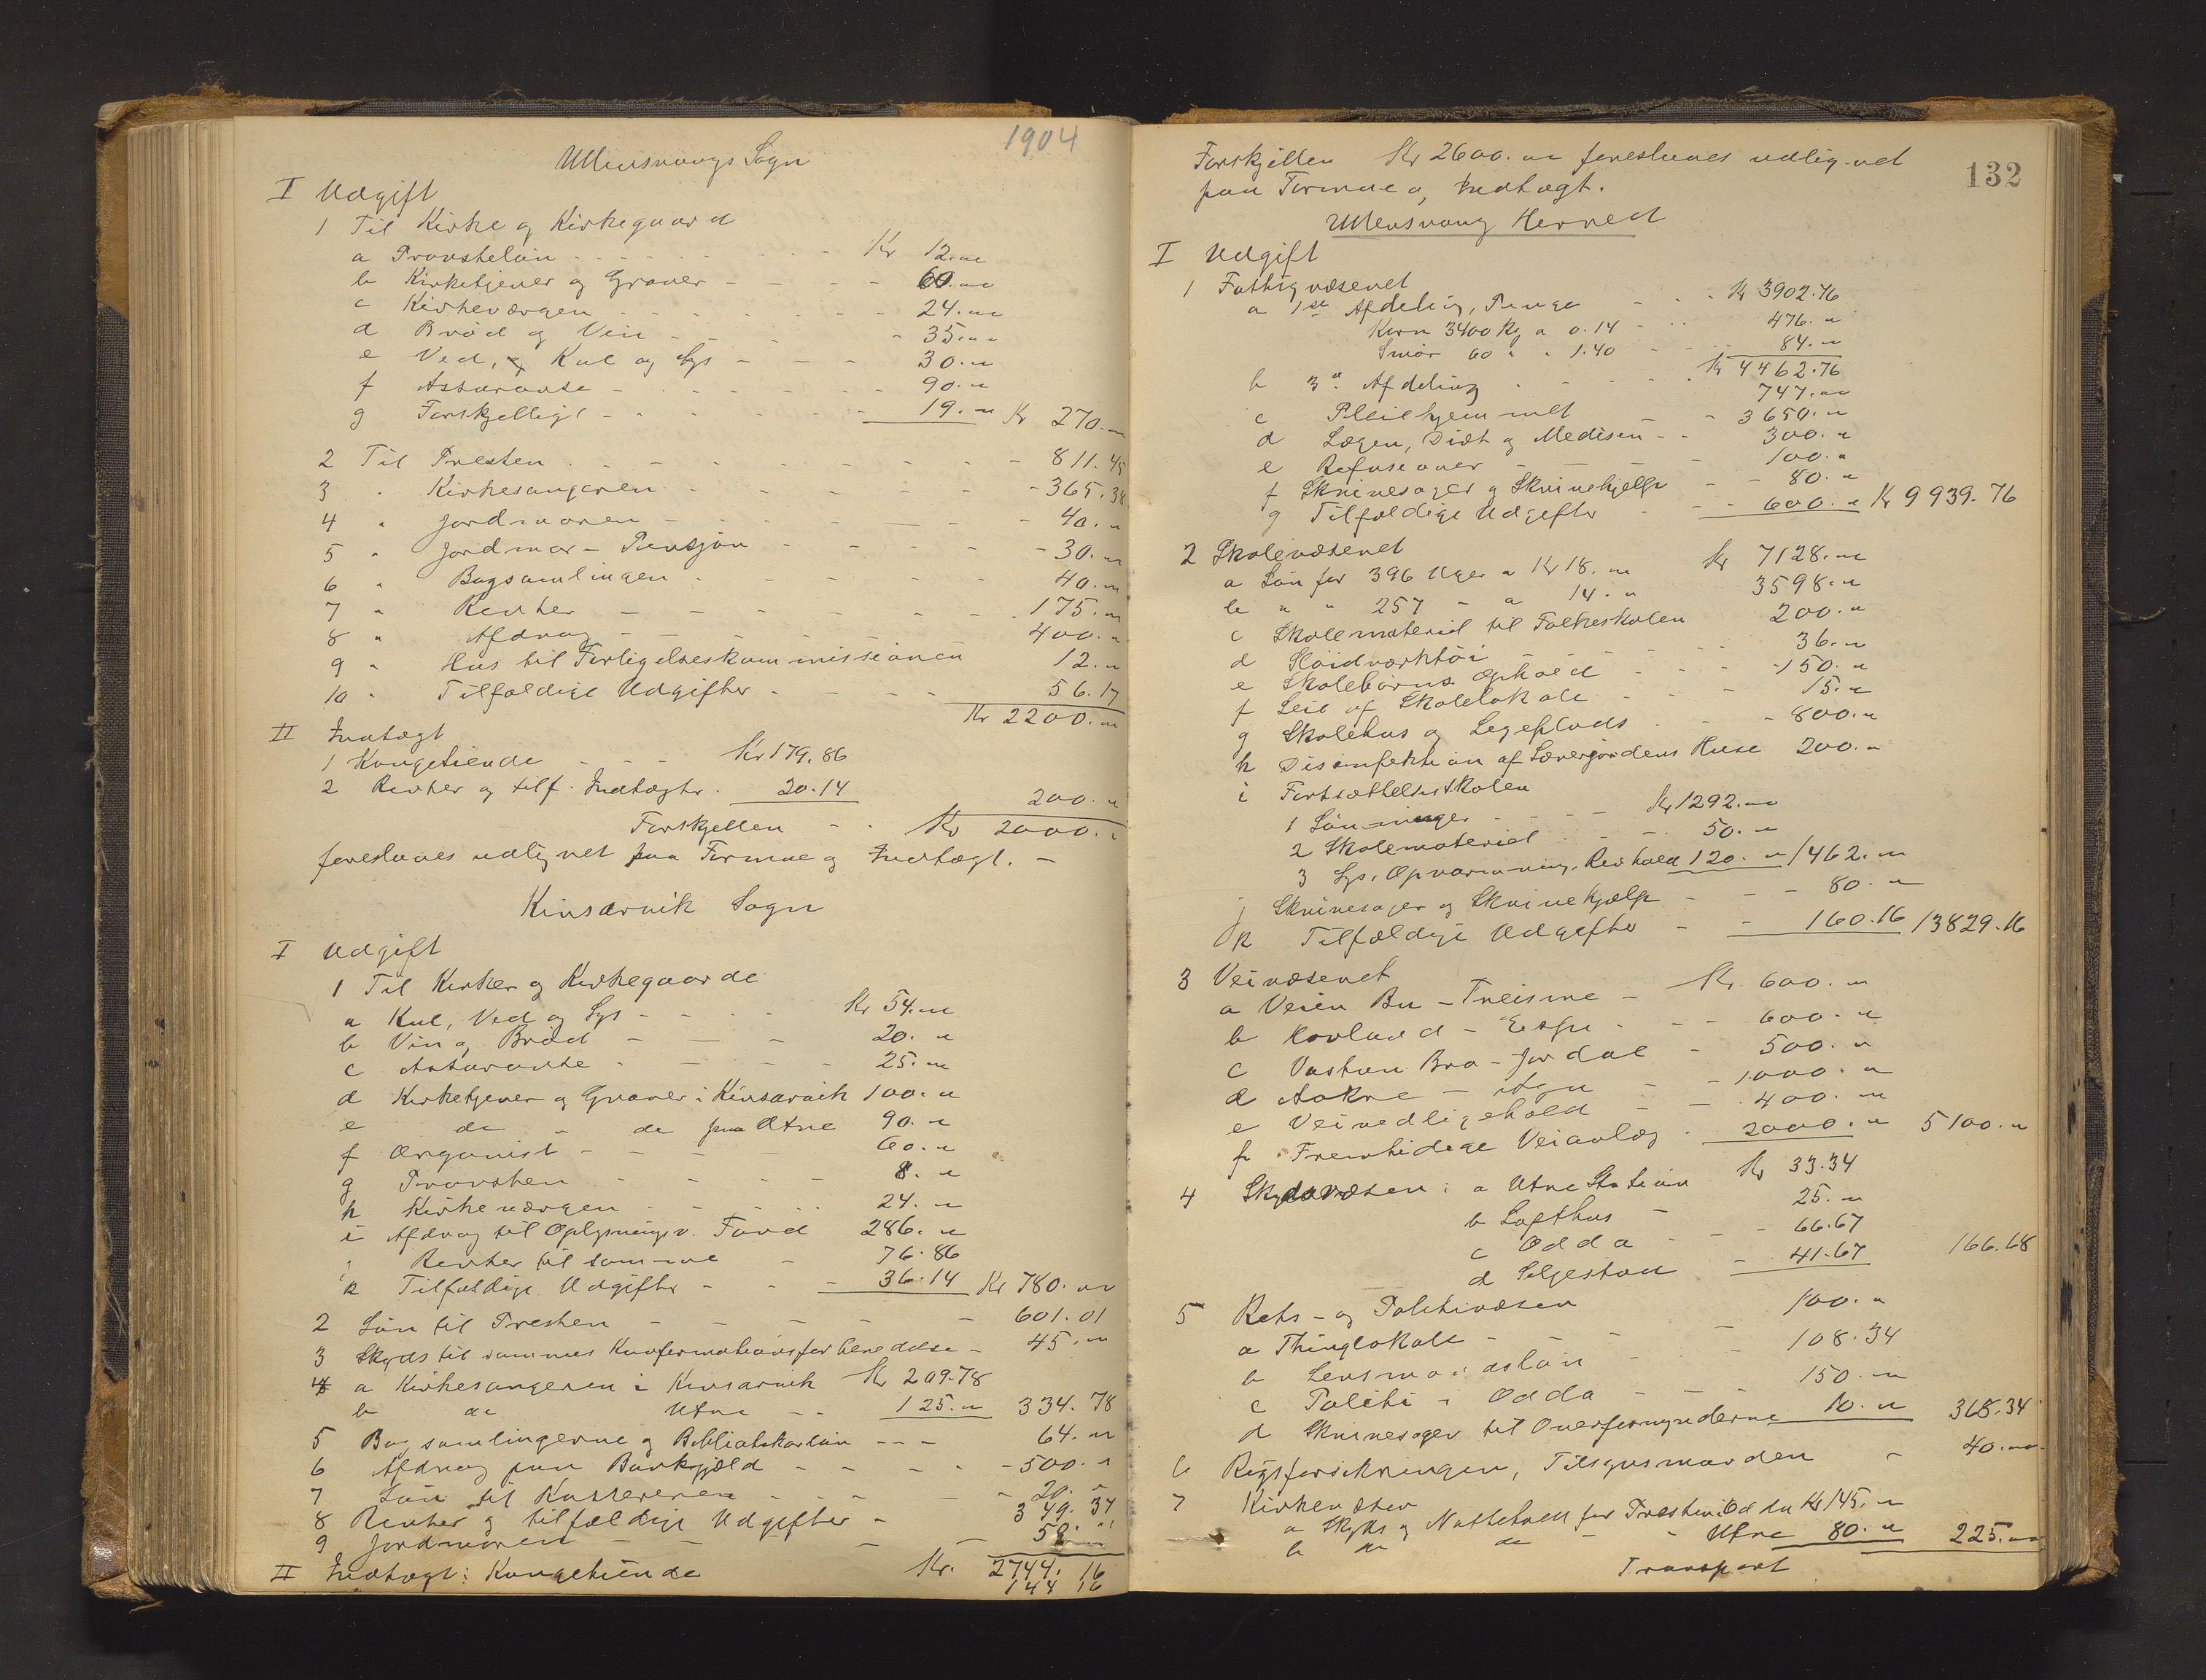 1904
Ullensvangs Sogn
I Udgift
1 Til Kirke og Kirkegaard
a Provsteløn - - - Kr 12.00
b Kirketjener og Graver - - - 60.00
c Kirkeværgen - - - 24.00
d Brød og Vin - - - 35.00
e Ved, Kul og Lys - - - 30.00
f Assuranse - - - 90.00
g Forskjelligt - - - 19.00 Kr 270.00
2 Til Presten - - - 811.45
3 " Kirkesangeren - - - 365.38
4 " Jordmoren - - - 40.00
5 " Jordmor-Pensjon - - - 30.00
6 " Bogsamlingen - - - 40.00
7 " Renter - - - 175.00
8 " Afdrag - - - 400.00
9 " Hus til Forligelseskommissionen 12.00
10 " Tilfældige Udgifter - - - 56.17
Kr 2200.00
II Indtægt
1 Kongetiende - - - Kr 179.86
2 Renter og tilf. Indtægter. 20.14 200.00
Forskjellen - - Kr 2000.00
foreslaaes udlignet paa Formue og Indtægt. -
Kinsarvik Sogn
I Udgift
1 Til Kirker og Kirkegaarde
a Kul, Ved og Lys - - - Kr 54.00
b Vin og Brød - - - 20.00
c Assuranse - - - 25.00
d Kirketjener og Graver i Kinsarvik 100.00
e do " do paa Utne 90.00
f Organist - - - 60.00
g Provsten - - - 8.00
h Kirkeværgen - - - 24.00
i Afdrag til Oplysningsv. Fond 286.00
j Renter til samme - 76.86
k Tilfældige Udgifter - - - 36.14 Kr 780.00
2 Løn til Presten - - - 601.01
3 Skyds til sammes Konfirmationsforberedelse - 45.00
4 a Kirkesangeren i Kinsarvik Kr 209.78
b do Utne - - 125.00 334.78
5 Bogsamlingerne og Bibliotekarløn - - - 64.00
6 Afdrag paa Bankgjæld - - - 500.00
7 Løn til Kassereren - - - 20.00
8 Renter og tilfældige Udgifter - 349.37
9 Jordmoren - - - 50.00
Kr. 2744.16
II Indtægt: Kongetiende 144 16
132
Forskjellen Kr 2600.00 foreslaaes udlignet
paa Formue og Indtægt.
Ullensvang Herred
I Udgift
1 Fattigvæsenet
a 1ste Afdeling, Penge - - - Kr 3902.76
Korn 3400 Kg a 0.14 - - 476.00
Smør 60 " " 1.40 - - 84.00
Kr 4462.76
b 3die Afdeling - - - 747.00
c Pleiehjemmet - - 3650.00
d Lægen, Diæt og Medisin - - 300.00
e Refusioner - - - 100.00
f Skrivesager og Skrivehjælp - - 80.00
g Tilfældige Udgifter - - 600.00 Kr 9939.76
2 Skolevæsenet
a Løn for 396 Uger a Kr 18.00 Kr 7128.00
b " " 257 - a 14.00 3598.00
c Skolemateriel til Folkeskolen 200.00
d Sløidværktøi - - - 36.00
e Skolebørns Ophold - - - 150.00
f Leie af Skolelokale - - - 15.00
g Skolehus og Legeplads - - - 800.00
h Disinfektion af Lærerjordens Huse 200.00
i Fortsættelsesskolen
1 Lønninger - - - Kr 1292.00
2 Skolemateriel - - - 50.00
3 Lys, Opvarmning, Renhold 120.00 1462.00
j Skrivesager og Skrivehjælp - - - 80.00
k Tilfældige Udgifter - - 160.16 13829.16
3 Veivæsenet
a Veien Bu - Treisme - Kr. 600.00
b Hovland - Espe - - - 600.00
c Vastun Bro - Jordal - 500.00
d Aakre - Aga - - 1000.00
e Veivedligehold - - 400.00
f Fremtidige Veianlæg - 2000.00 5100.00
4 Skydsvæsen: a Utne Station Kr 33.34
b Lofthus - 25.00
c Odda - - - 66.67
d Seljestad - 41.67 166.68
5 Rets- og Politivæsen
a Thinglokale - - - 100.00
b Lensmandsløn - - - 108.34
c Politi i Odda - - - 150.00
d Skrivesager til Overformynderne 10.00 368.34
6 Rigsforsikringen, Tilsynsmanden - 40.00
7 Kirkevæsen
a Skyds og Nattehold for Presten i Odda Kr 145.00
b do do - Utne 80.00 225.00
Transport